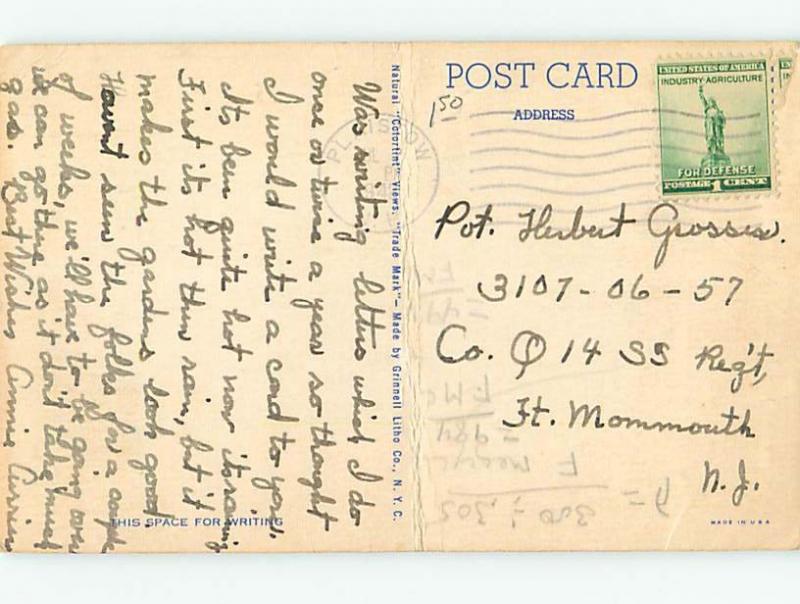 Was writing letters which I do
once or twice a year so thought
I would write a card to you.
Its been quite hot now its raining
First its hot then rain, but it
makes the gardens look good.
Havent seen the folks for a couple
of weeks, we'll have to be going over
we can go there as it don't take much
gas. Best Wishes Annie
THIS SPACE FOR WRITING
Natural "Colortint" Views. "Trade Mark" — Made by Grinnell Litho Co., N. Y. C.
POST CARD
ADDRESS
1 50
PLAISTOW
UNITED STATES OF AMERICA
INDUSTRY·AGRICULTURE
FOR DEFENSE
POSTAGE 1 CENT
Pvt. Herbert
3107-06-57
Co. Q 14 SS Reg't,
Ft. Mommouth
N.J.
MADE IN U S A